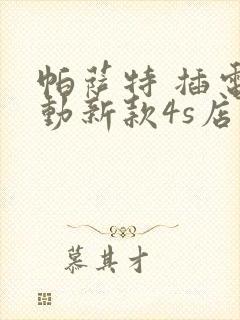 帕萨特 插電
動新款4s店
慕其才